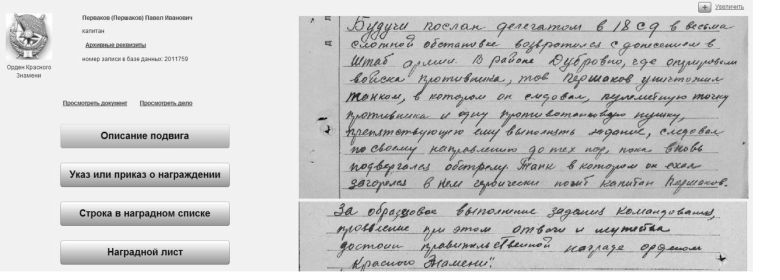 Увеличить
Перваков (Першаков) Павел Иванович
капитан
Архивные реквизиты
номер записи в базе данных: 2011759
Орден Красного
Знамени
Просмотреть документ Просмотреть дело
Описание подвига
Указ или приказ о награждении
Строка в наградном списке
Наградной лист
Будучи послан делегатом в 18 СД в весьма
сложной обстановке возвратился с донесением в
штаб армии. В районе Дубровно, где оперировали
войска противника, тов Першаков уничтожил
танком, в котором он следовал, пулеметную точку
противника и одну противотанковую пушку,
препятствующую ему выполнять задание, следовал
по своему направлению до тех пор, пока вновь
подвергался обстрелу. Танк в котором он ехал
загорелся в нем героически погиб капитан Першаков.
За образцовое выполнение заданий командования,
проявление при этом отваги и мужества
достоин правительственной награде орденом
"Красного Знамени".